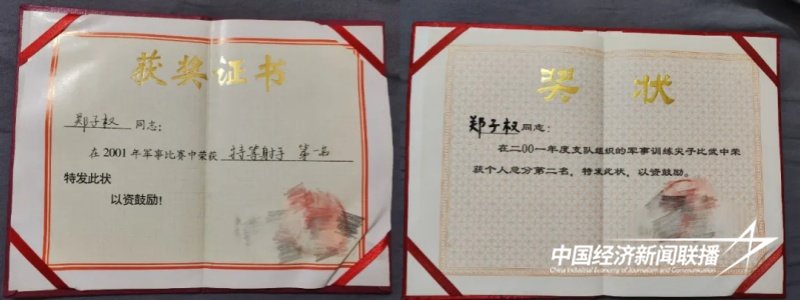 获奖证书
郑子权 同志：
在2001年军事比赛中荣获 特等射手 第一名
特发此状
以资鼓励！
奖状
郑子权同志：
在二00一年度支队组织的军事训练尖子比武中荣
获个人总分第二名，特发此状，以资鼓励。
中国经济新闻联播
China Industrial Economy of Journalism and Communication